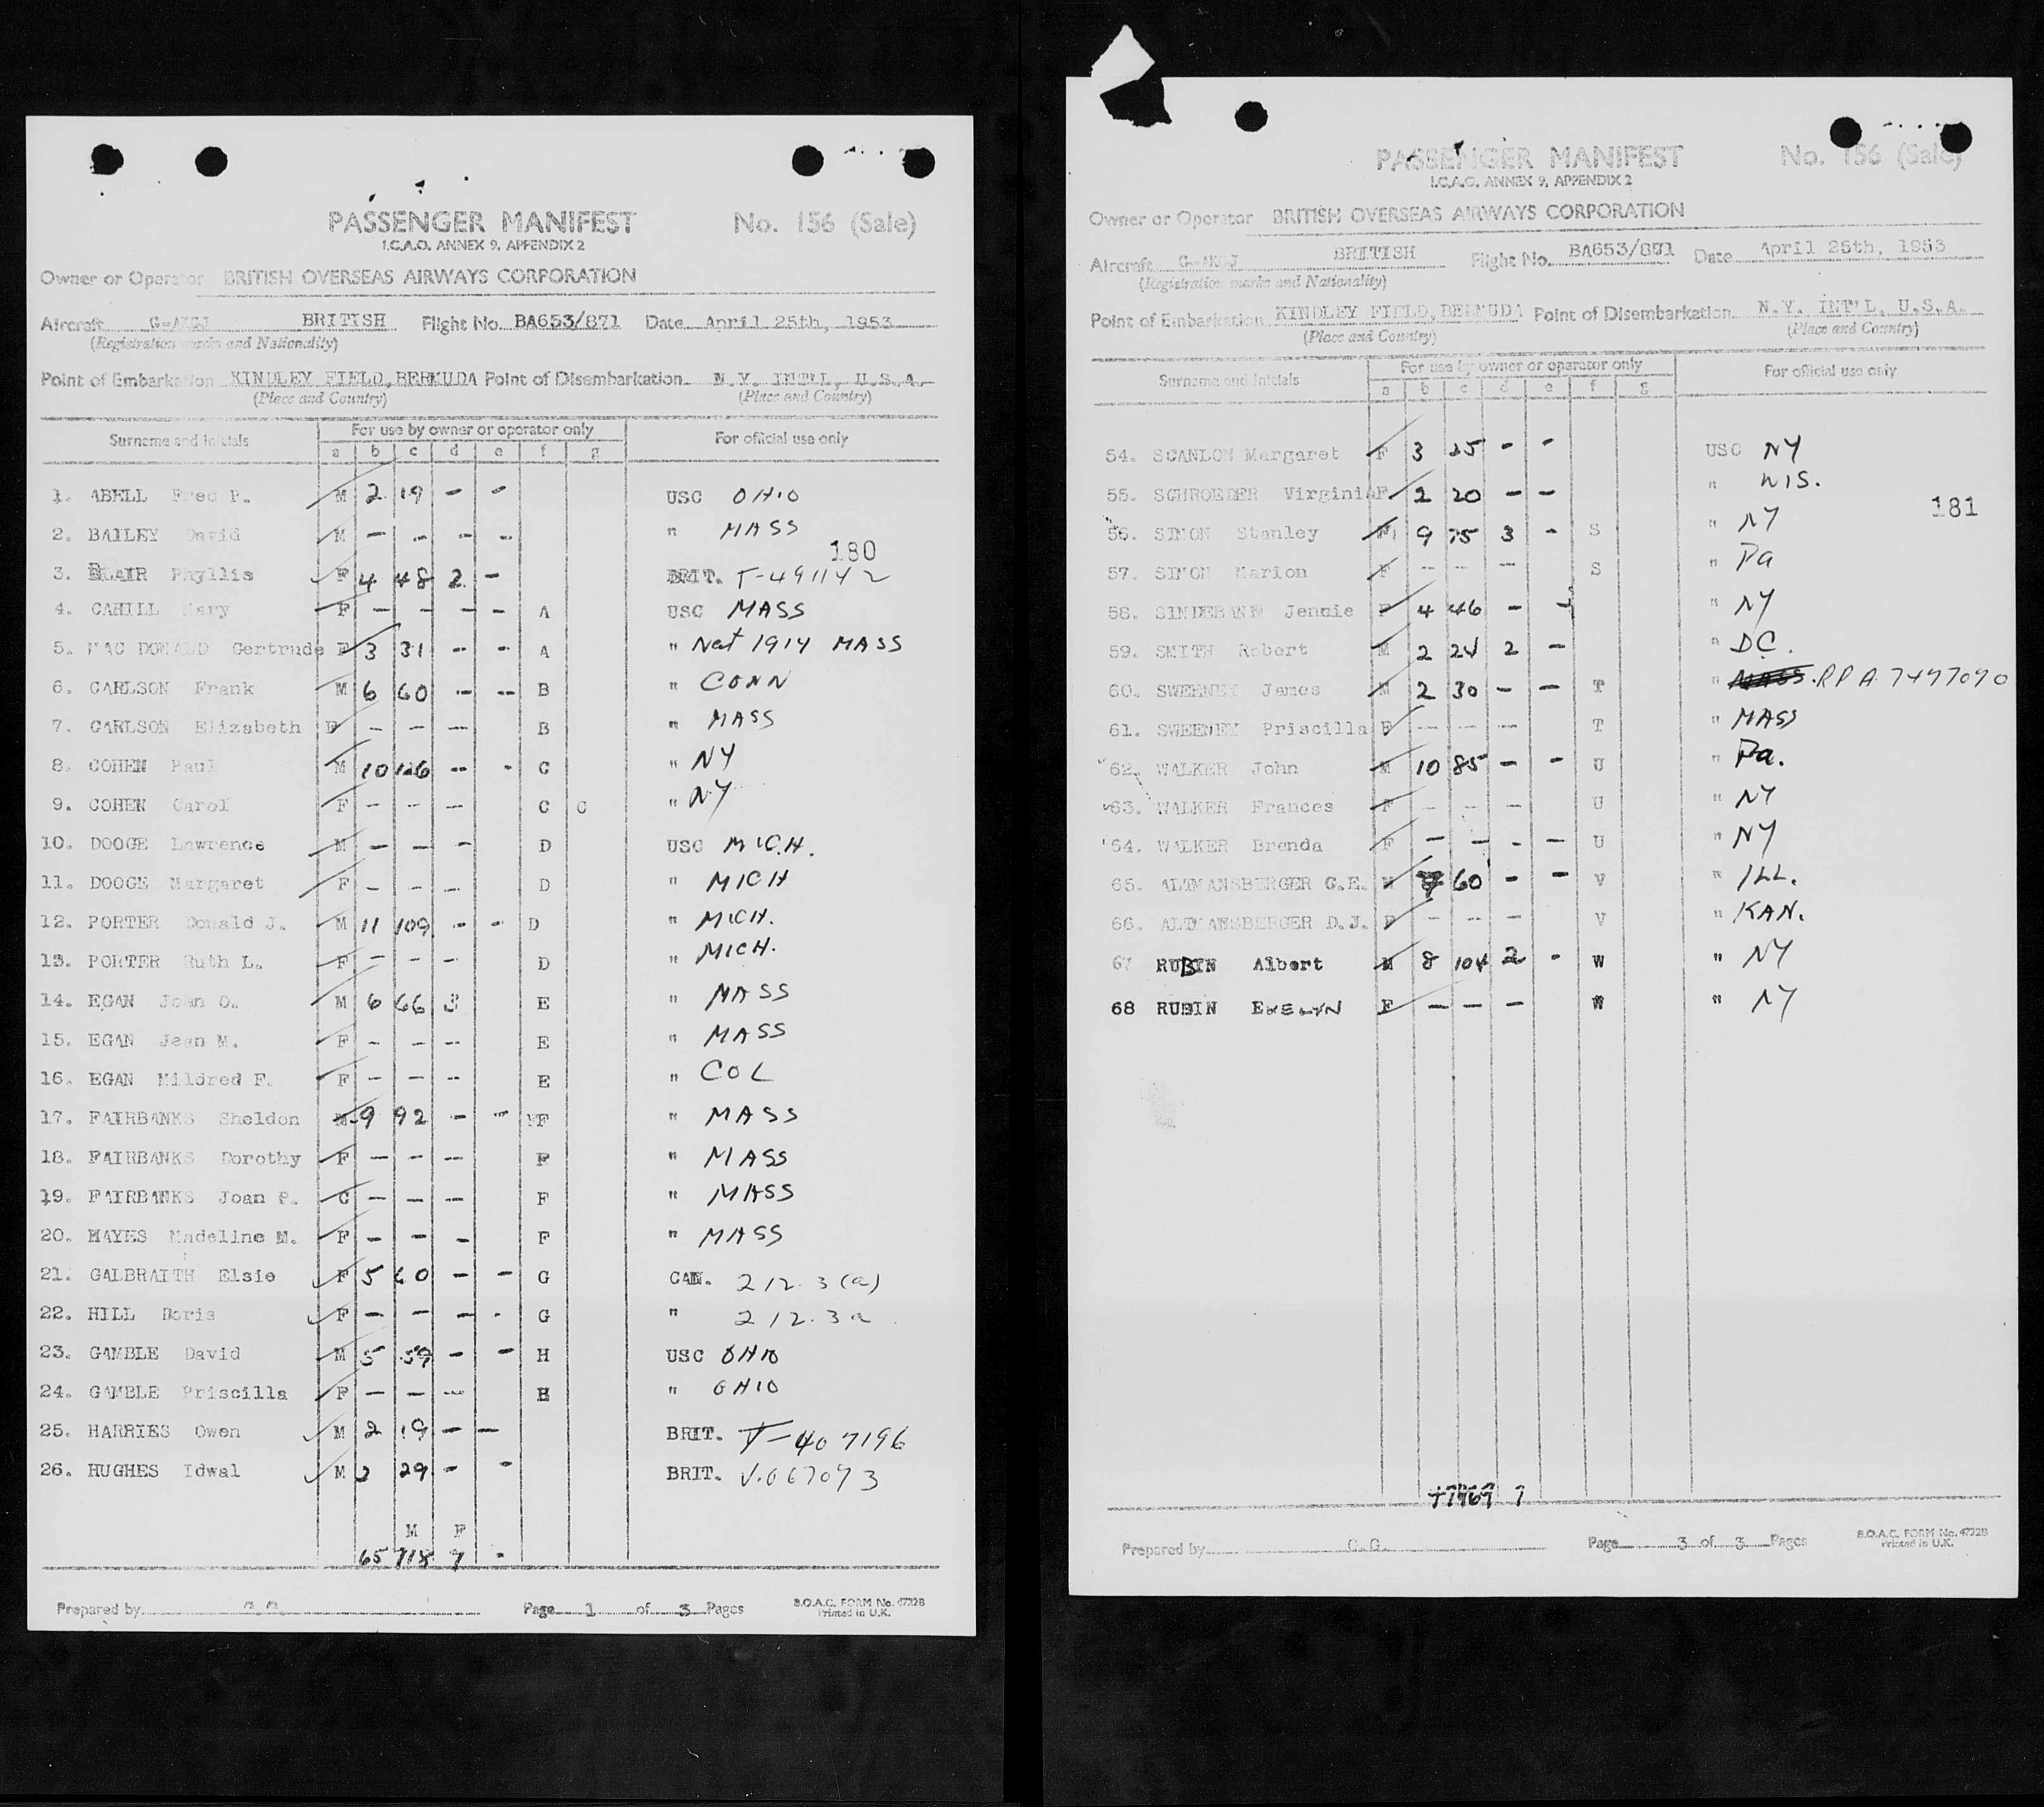 PASSENGER MANIFEST No. 156 (Sale)
I.C.A.O. ANNEX 9, APPENDIX 2
Owner or Operator BRITISH OVERSEAS AIRWAYS CORPORATION
Aircraft BRITISH Flight No. BA653/871 Date April 25th, 1953
(Registration marks and Nationality)
Point of Embarkation KINDLEY FIELD, BERMUDA Point of Disembarkation N.Y. INT'L, U.S.A.
(Place and Country) (Place and Country)
Surname and Initials For use by owner or operator only For official use only
a b c d e f g
1. ABELL Fred P. M 2 19 - - USC OHIO
2. BAILEY David M - - - - " MASS
180
3. BLAIR Phyllis F 4 48 2 - BRIT. T-491142
4. CAHILL Mary F - - - - A USC MASS
5. MAC DONALD Gertrude F 3 31 - - A " Nat 1914 MASS
6. CARLSON Frank M 6 60 - - B " CONN
7. CARLSON Elizabeth F - - - B " MASS
8. COHEN Paul M 10 126 - - C " NY
9. COHEN Carol F - - - C C " NY
10. DOOGE Lawrence M - - - D USC MICH.
11. DOOGE Margaret F - - - D " MICH
12. PORTER Donald J. M 11 109 - - D " MICH.
13. PORTER Ruth L. F - - - D " MICH.
14. EGAN John O. M 6 66 3 E " MASS
15. EGAN Jean M. F - - - E " MASS
16. EGAN Mildred F. F - - - E " COL
17. FAIRBANKS Sheldon M 9 92 - - F " MASS
18. FAIRBANKS Dorothy F - - - F " MASS
19. FAIRBANKS Joan P. C - - - F " MASS
20. HAYES Madeline M. F - - - F " MASS
21. GALBRAITH Elsie F 5 60 - - G CAN. 212.3(a)
22. HILL Doris F - - - - G " 212.3a
23. GAMBLE David M 5 59 - - H USC OHIO
24. GAMBLE Priscilla F - - - H " OHIO
25. HARRIES Owen M 2 19 - - BRIT. V-407196
26. HUGHES Idwal M 29 - - BRIT. V.067093
M F
65 718 7 -
Prepared by Page 1 of 3 Pages B.O.A.C. FORM No. 4722B
Printed in U.K.
PASSENGER MANIFEST No. 156 (Sale)
I.C.A.O. ANNEX 9, APPENDIX 2
Owner or Operator BRITISH OVERSEAS AIRWAYS CORPORATION
Aircraft BRITISH Flight No. BA653/871 Date April 25th, 1953
(Registration marks and Nationality)
Point of Embarkation KINDLEY FIELD, BERMUDA Point of Disembarkation N.Y. INT'L, U.S.A.
(Place and Country) (Place and Country)
Surname and Initials For use by owner or operator only For official use only
a b c d e f g
54. SCANLON Margaret F 3 25 - - USC NY
55. SCHROEDER Virginia F 2 20 - - " WIS.
181
56. SIMON Stanley M 9 75 3 - S " NY
57. SIMON Marion F - - - S " Pa
58. Jennie F 4 46 - - " NY
59. SMITH Robert M 2 24 2 - " D.C.
60. SWEENEY James M 2 30 - - T " MASS. RPA 7497090
61. SWEENEY Priscilla F - - - T " MASS
62. WALKER John M 10 85 - - U " Pa.
63. WALKER Frances F - - - U " NY
64. WALKER Brenda F - - - - U " NY
65. ALTMANSBERGER G.E. M 7 60 - - V " ILL.
66. ALTMANSBERGER D.J. F - - - V " KAN.
67 RUBIN Albert M 8 104 2 - W " NY
68 RUBIN EVELYN F - - - W " NY
Prepared by C.G. Page 3 of 3 Pages B.O.A.C. FORM No. 4722B
Printed in U.K.